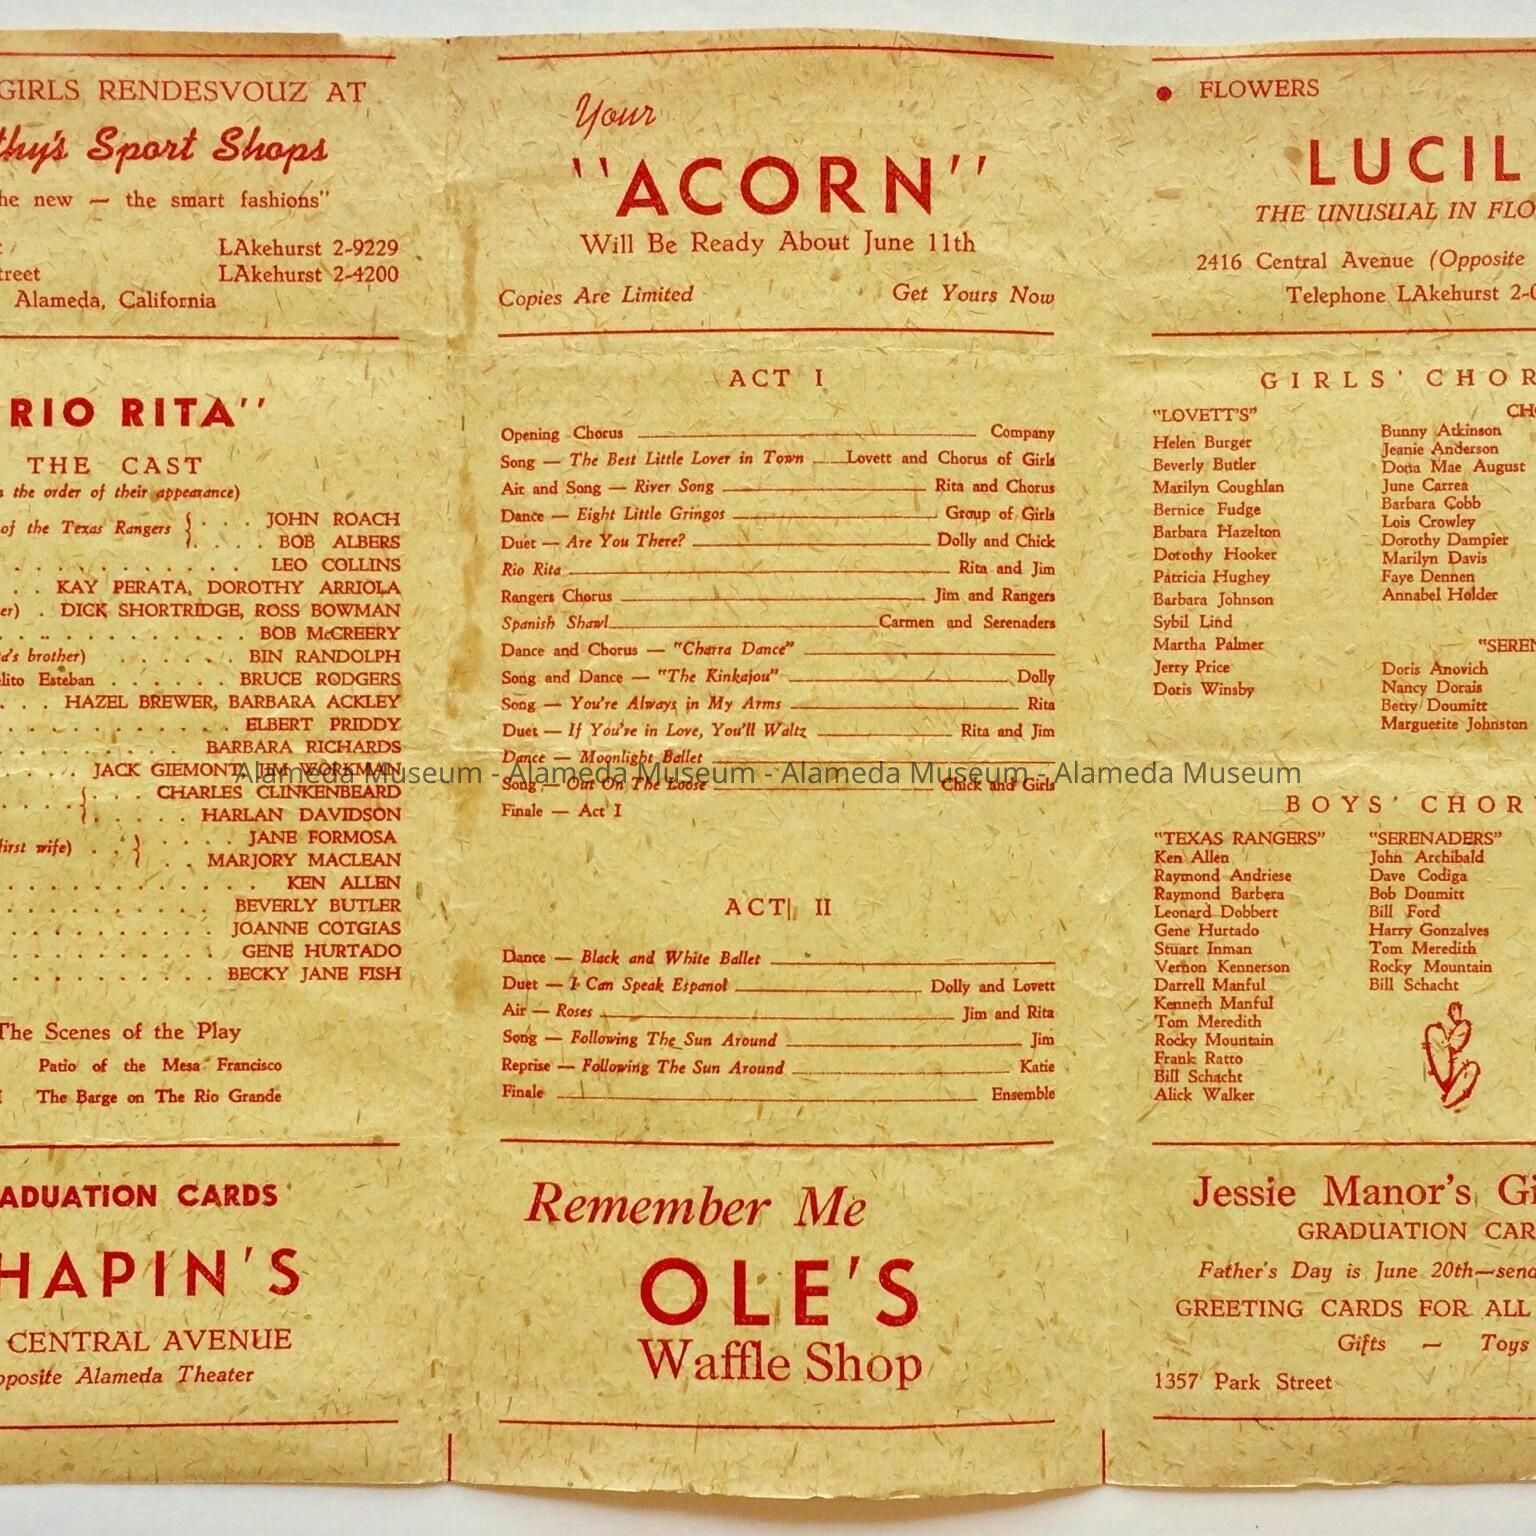 GIRLS RENDESVOUZ AT
thy's Sport Shops
he new — the smart fashions"
LAkehurst 2-9229
treet LAkehurst 2-4200
Alameda, California
RIO RITA"
THE CAST
the order of their appearance)
of the Texas Rangers { . . . JOHN ROACH
. . . . BOB ALBERS
. . . . . . . . . . . LEO COLLINS
. . KAY PERATA, DOROTHY ARRIOLA
er) . DICK SHORTRIDGE, ROSS BOWMAN
. . . . . . . . . . . . BOB McCREERY
d's brother) . . . . . . BIN RANDOLPH
lito Esteban . . . . . . BRUCE RODGERS
. . . HAZEL BREWER, BARBARA ACKLEY
. . . . . . . . . . . . ELBERT PRIDDY
. . . . . . . . . . BARBARA RICHARDS
. . . . JACK GIEMONT, JIM WORKMAN
. . . . { . . . CHARLES CLINKENBEARD
. . . . . HARLAN DAVIDSON
first wife) . . } . . . . JANE FORMOSA
. . MARJORY MACLEAN
. . . . . . . . . . . . . KEN ALLEN
. . . . . . . . . . . BEVERLY BUTLER
. . . . . . . . . . . JOANNE COTGIAS
. . . . . . . . . . . GENE HURTADO
. . . . . . . . . . . BECKY JANE FISH
The Scenes of the Play
Patio of the Mesa Francisco
The Barge on The Rio Grande
ADUATION CARDS
HAPIN'S
CENTRAL AVENUE
pposite Alameda Theater
Your
"ACORN"
Will Be Ready About June 11th
Copies Are Limited Get Yours Now
ACT I
Opening Chorus Company
Song — The Best Little Lover in Town Lovett and Chorus of Girls
Air and Song — River Song Rita and Chorus
Dance — Eight Little Gringos Group of Girls
Duet — Are You There? Dolly and Chick
Rio Rita Rita and Jim
Rangers Chorus Jim and Rangers
Spanish Shawl Carmen and Serenaders
Dance and Chorus — "Charra Dance"
Song and Dance — "The Kinkajou" Dolly
Song — You're Always in My Arms Rita
Duet — If You're in Love, You'll Waltz Rita and Jim
Dance — Moonlight Ballet
Alameda Museum - Alameda Museum - Alameda Museum - Alameda Museum
Song — Out On The Loose Chick and Girls
Finale — Act I
ACT II
Dance — Black and White Ballet
Duet — I Can Speak Espanol Dolly and Lovett
Air — Roses Jim and Rita
Song — Following The Sun Around Jim
Reprise — Following The Sun Around Katie
Finale Ensemble
Remember Me
OLE'S
Waffle Shop
● FLOWERS
LUCIL
THE UNUSUAL IN FLO
2416 Central Avenue (Opposite
Telephone LAkehurst 2-0
GIRLS' CHOR
"LOVETT'S"
Helen Burger
Beverly Butler
Marilyn Coughlan
Bernice Fudge
Barbara Hazelton
Dorothy Hooker
Patricia Hughey
Barbara Johnson
Sybil Lind
Martha Palmer
Jerry Price
Doris Winsby
CHO
Bunny Atkinson
Jeanie Anderson
Dona Mae August
June Carrea
Barbara Cobb
Lois Crowley
Dorothy Dampier
Marilyn Davis
Faye Dennen
Annabel Holder
"SEREN
Doris Anovich
Nancy Dorais
Betty Doumitt
Marguerite Johnston
BOYS' CHOR
"TEXAS RANGERS"
Ken Allen
Raymond Andriese
Raymond Barbera
Leonard Dobbert
Gene Hurtado
Stuart Inman
Vernon Kennerson
Darrell Manful
Kenneth Manful
Tom Meredith
Rocky Mountain
Frank Ratto
Bill Schacht
Alick Walker
"SERENADERS"
John Archibald
Dave Codiga
Bob Doumitt
Bill Ford
Harry Gonzalves
Tom Meredith
Rocky Mountain
Bill Schacht
Jessie Manor's Gi
GRADUATION CAR
Father's Day is June 20th—send
GREETING CARDS FOR ALL
Gifts — Toys
1357 Park Street